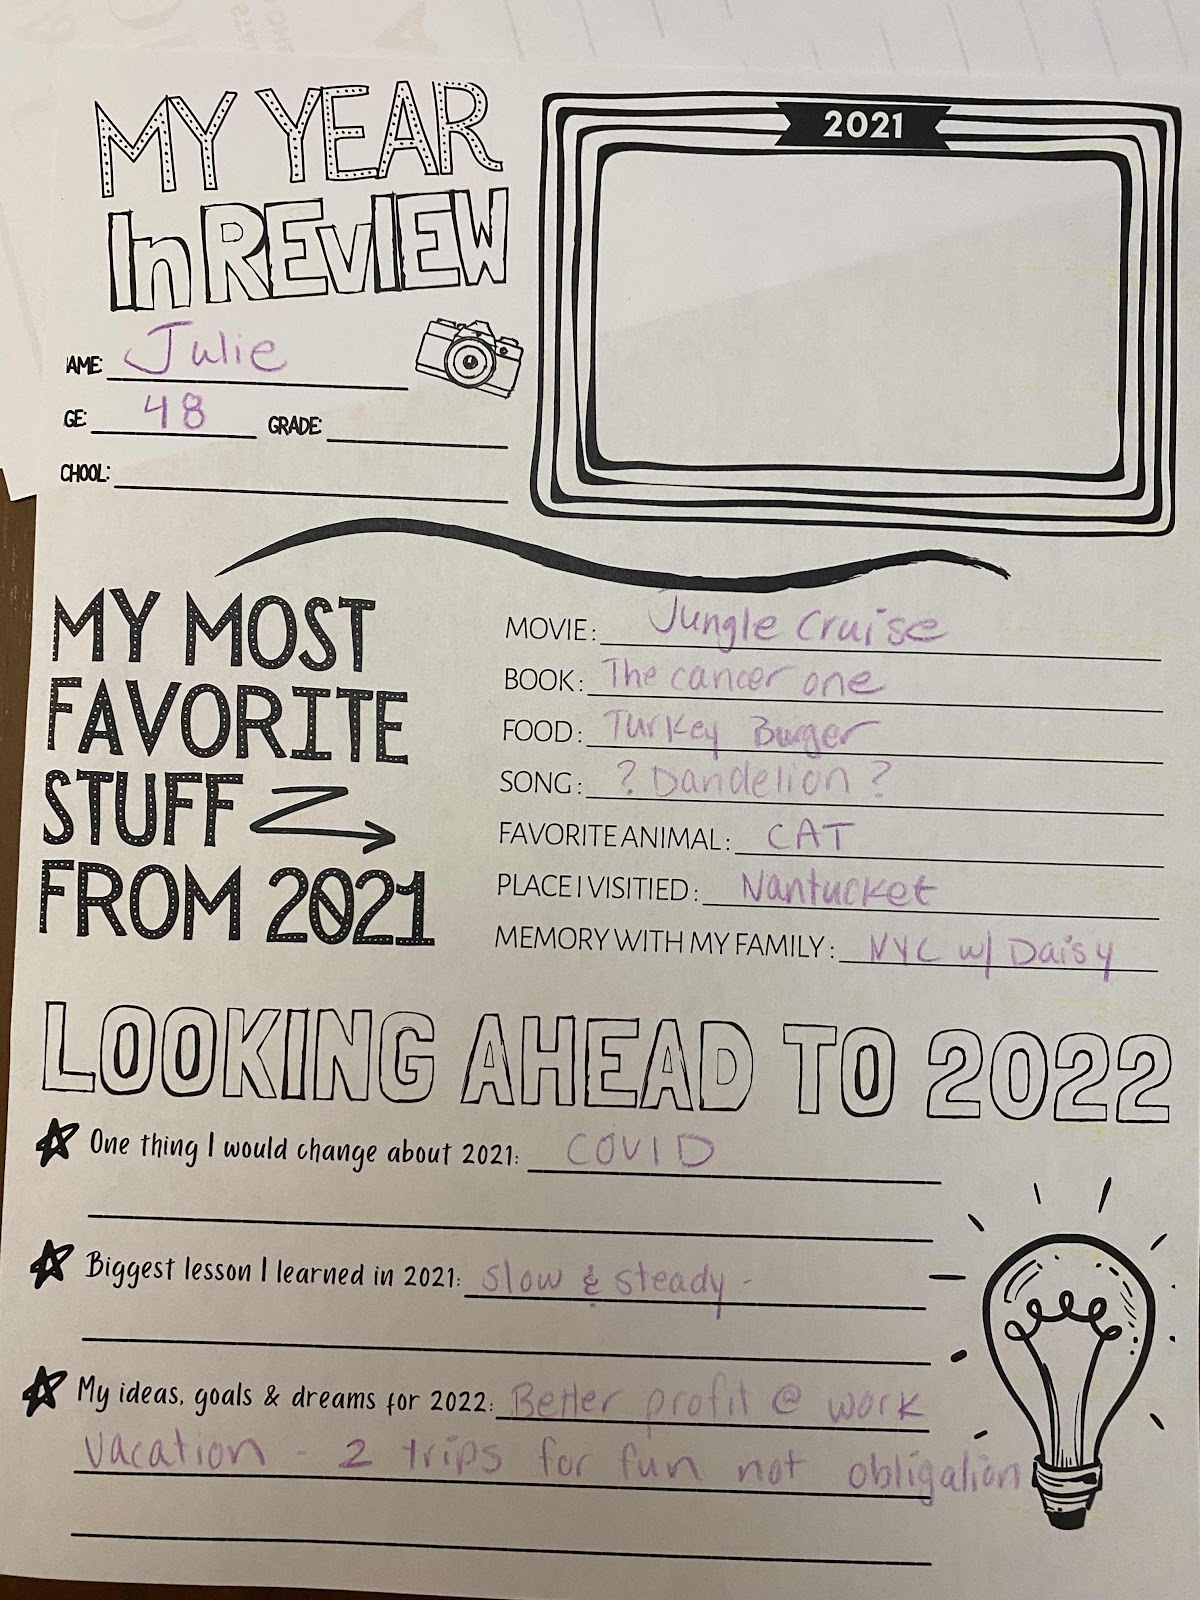 MY YEAR
In REVIEW
2021
AME: Julie
GE: 48 GRADE:
CHOOL:
MY MOST
FAVORITE
STUFF
FROM 2021
MOVIE: Jungle Cruise
BOOK: The cancer one
FOOD: Turkey Burger
SONG: ? Dandelion ?
FAVORITE ANIMAL: CAT
PLACE I VISITIED: Nantucket
MEMORY WITH MY FAMILY: NYC w/ Daisy
LOOKING AHEAD TO 2022
One thing I would change about 2021: COVID
Biggest lesson I learned in 2021: slow & steady -
My ideas, goals & dreams for 2022: Better profit @ work
vacation - 2 trips for fun not obligation